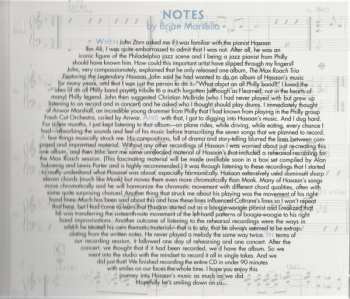 NOTES
by Brian Marsella
When John Zorn asked me if I was familiar with the pianist Hassan
Ibn Ali, I was quite embarrassed to admit that I was not. After all, he was an
iconic figure of the Philadelphia jazz scene and I being a jazz pianist from Philly
should have known him. How could this important artist have slipped through my fingers?
John, very compassionately, explained that he only released one album, The Max Roach Trio
Featuring the Legendary Hassan. John said he had wanted to do an album of Hassan's music
for many years, and that I was just the person to do it. "What about an all Philly band?" I loved the
idea (if an all Philly band paying tribute to a much forgotten (although as I learned, not in the hearts of
many) Philly legend. John then suggested Christian McBride (who I had never played with but grew up
listening to on record and in concert) and he asked who I thought should play drums. I immediately thought
of Anwar Marshall, an incredible young drummer from Philly that I had known from playing in the Philly group,
Fresh Cut Orchestra, co-led by Anwar. And with that, I got to digging into Hassan's music. And I dug hard.
For a few months, I just kept listening to that album—on plane rides, while driving, while eating, every chance I
had—absorbing the sounds and feel of his music before transcribing the seven songs that we planned to record.
A few things musically struck me: His compositions, full of drama and story-telling blurred the lines between com-
posed and improvised material. Without any other recordings of Hassan I was worried about just recreating this
one album, and then John sent me some unreleased material of Hassan's that included a rehearsal recording for
the Max Roach session. (This fascinating material will be made available soon in a box set compiled by Alan
Sukoenig and Lewis Porter and is highly recommended.) It was through listening to these recordings that I started
to really understand what Hassan was about, especially harmonically. Hassan extensively used dominant sharp
eleven chords (much like Monk) but moves them even more chromatically than Monk. Many of Hassan's songs
move chromatically and he will harmonize the chromatic movement with different chord qualities, often with
some quite surprising choices. Another thing that struck me about his playing was the movement of his right
hand lines. Much has been said about this and how these lines influenced Coltrane's lines so I won't repeat
that here, but I had come to learn that Hassan started out as a boogie-woogie pianist and I realized that
he was transferring the sixteenth-note movement of the left-hand patterns of boogie-woogie to his right
hand improvisations. Another outcome of listening to the rehearsal recordings were the ways in
which he treated his own thematic material—that is to say, that he always seemed to be extrapo-
lating from the written notes. He never played a melody the same way twice. In terms of
our recording session, it followed one day of rehearsing and one concert. After the
concert, we thought that if it had been recorded, we'd have the album. So we
went into the studio with the mindset to record it all in single takes. And we
did just that! We finished recording the entire CD in under 90 minutes
with smiles on our faces the whole time. I hope you enjoy this
journey into Hassan's music as much as we did.
Hopefully he's smiling down on us...